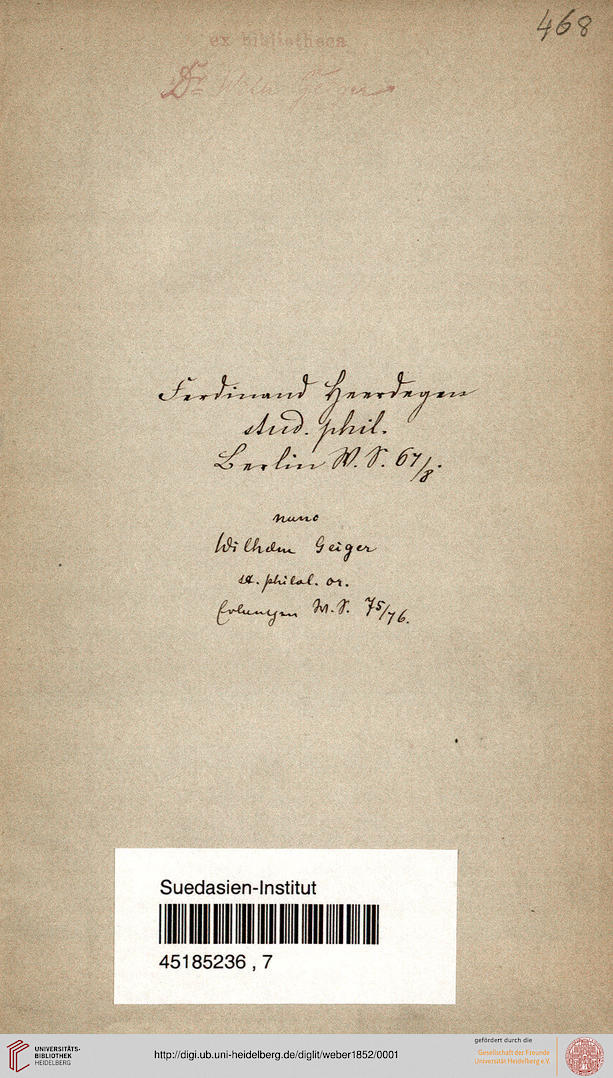 468
ex bibliotheca
Dr Wilh Geiger
Ferdinand Heerdegen
stud. phil.
Berlin W. S. 67/8.
nunc
Wilhelm Geiger
st. philol. or.
Erlangen W. S. 75/76.
Suedasien-Institut
45185236 , 7
UNIVERSITÄTS-
BIBLIOTHEK
HEIDELBERG
http://digi.ub.uni-heidelberg.de/diglit/weber1852/0001
gefördert durch die
Gesellschaft der Freunde
Universität Heidelberg e.V.